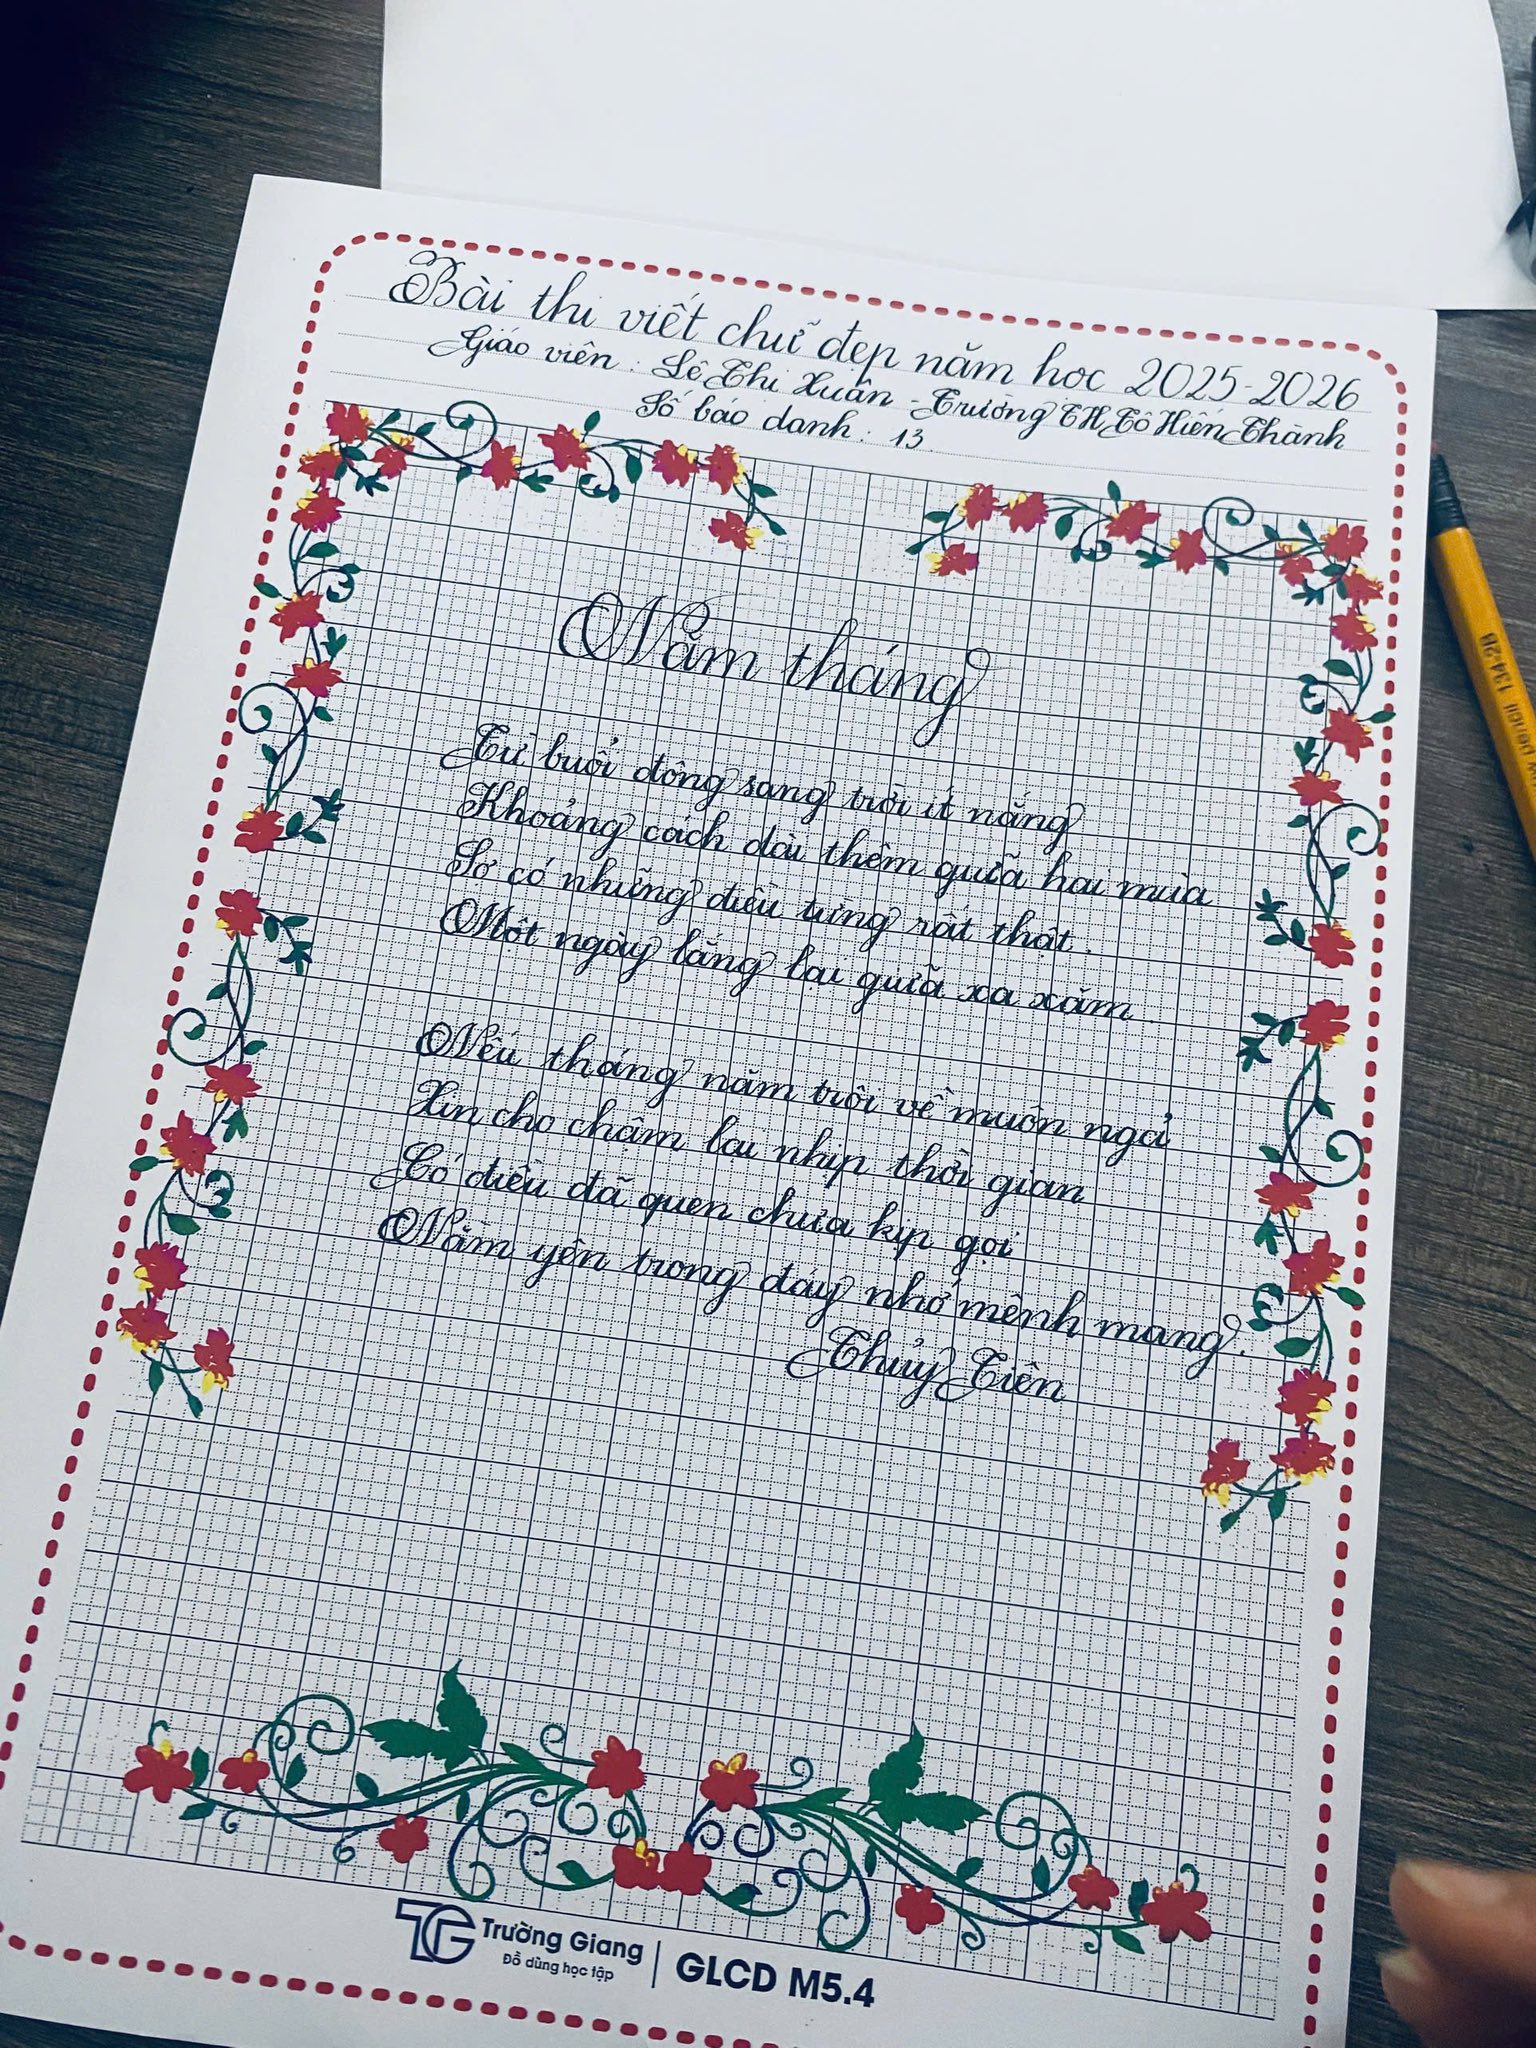 Bài thi viết chữ đẹp năm học 2025-2026
Giáo viên: Lê Thị Xuân - Trường TH Tô Hiến Thành
Số báo danh: 13.
Năm tháng
Từ buổi đông sang trời ít nắng
Khoảng cách dài thêm giữa hai mùa
Sợ có những điều từng rất thật.
Một ngày lắng lại giữa xa xăm
Nếu tháng năm trôi về muôn ngả
Xin cho chậm lại nhịp thời gian
Có điều đã quen chưa kịp gọi
Nằm yên trong đáy nhớ mênh mang.
Thủy Tiên
TG Trường Giang | GLCD M5.4
Đồ dùng học tập
134-2B